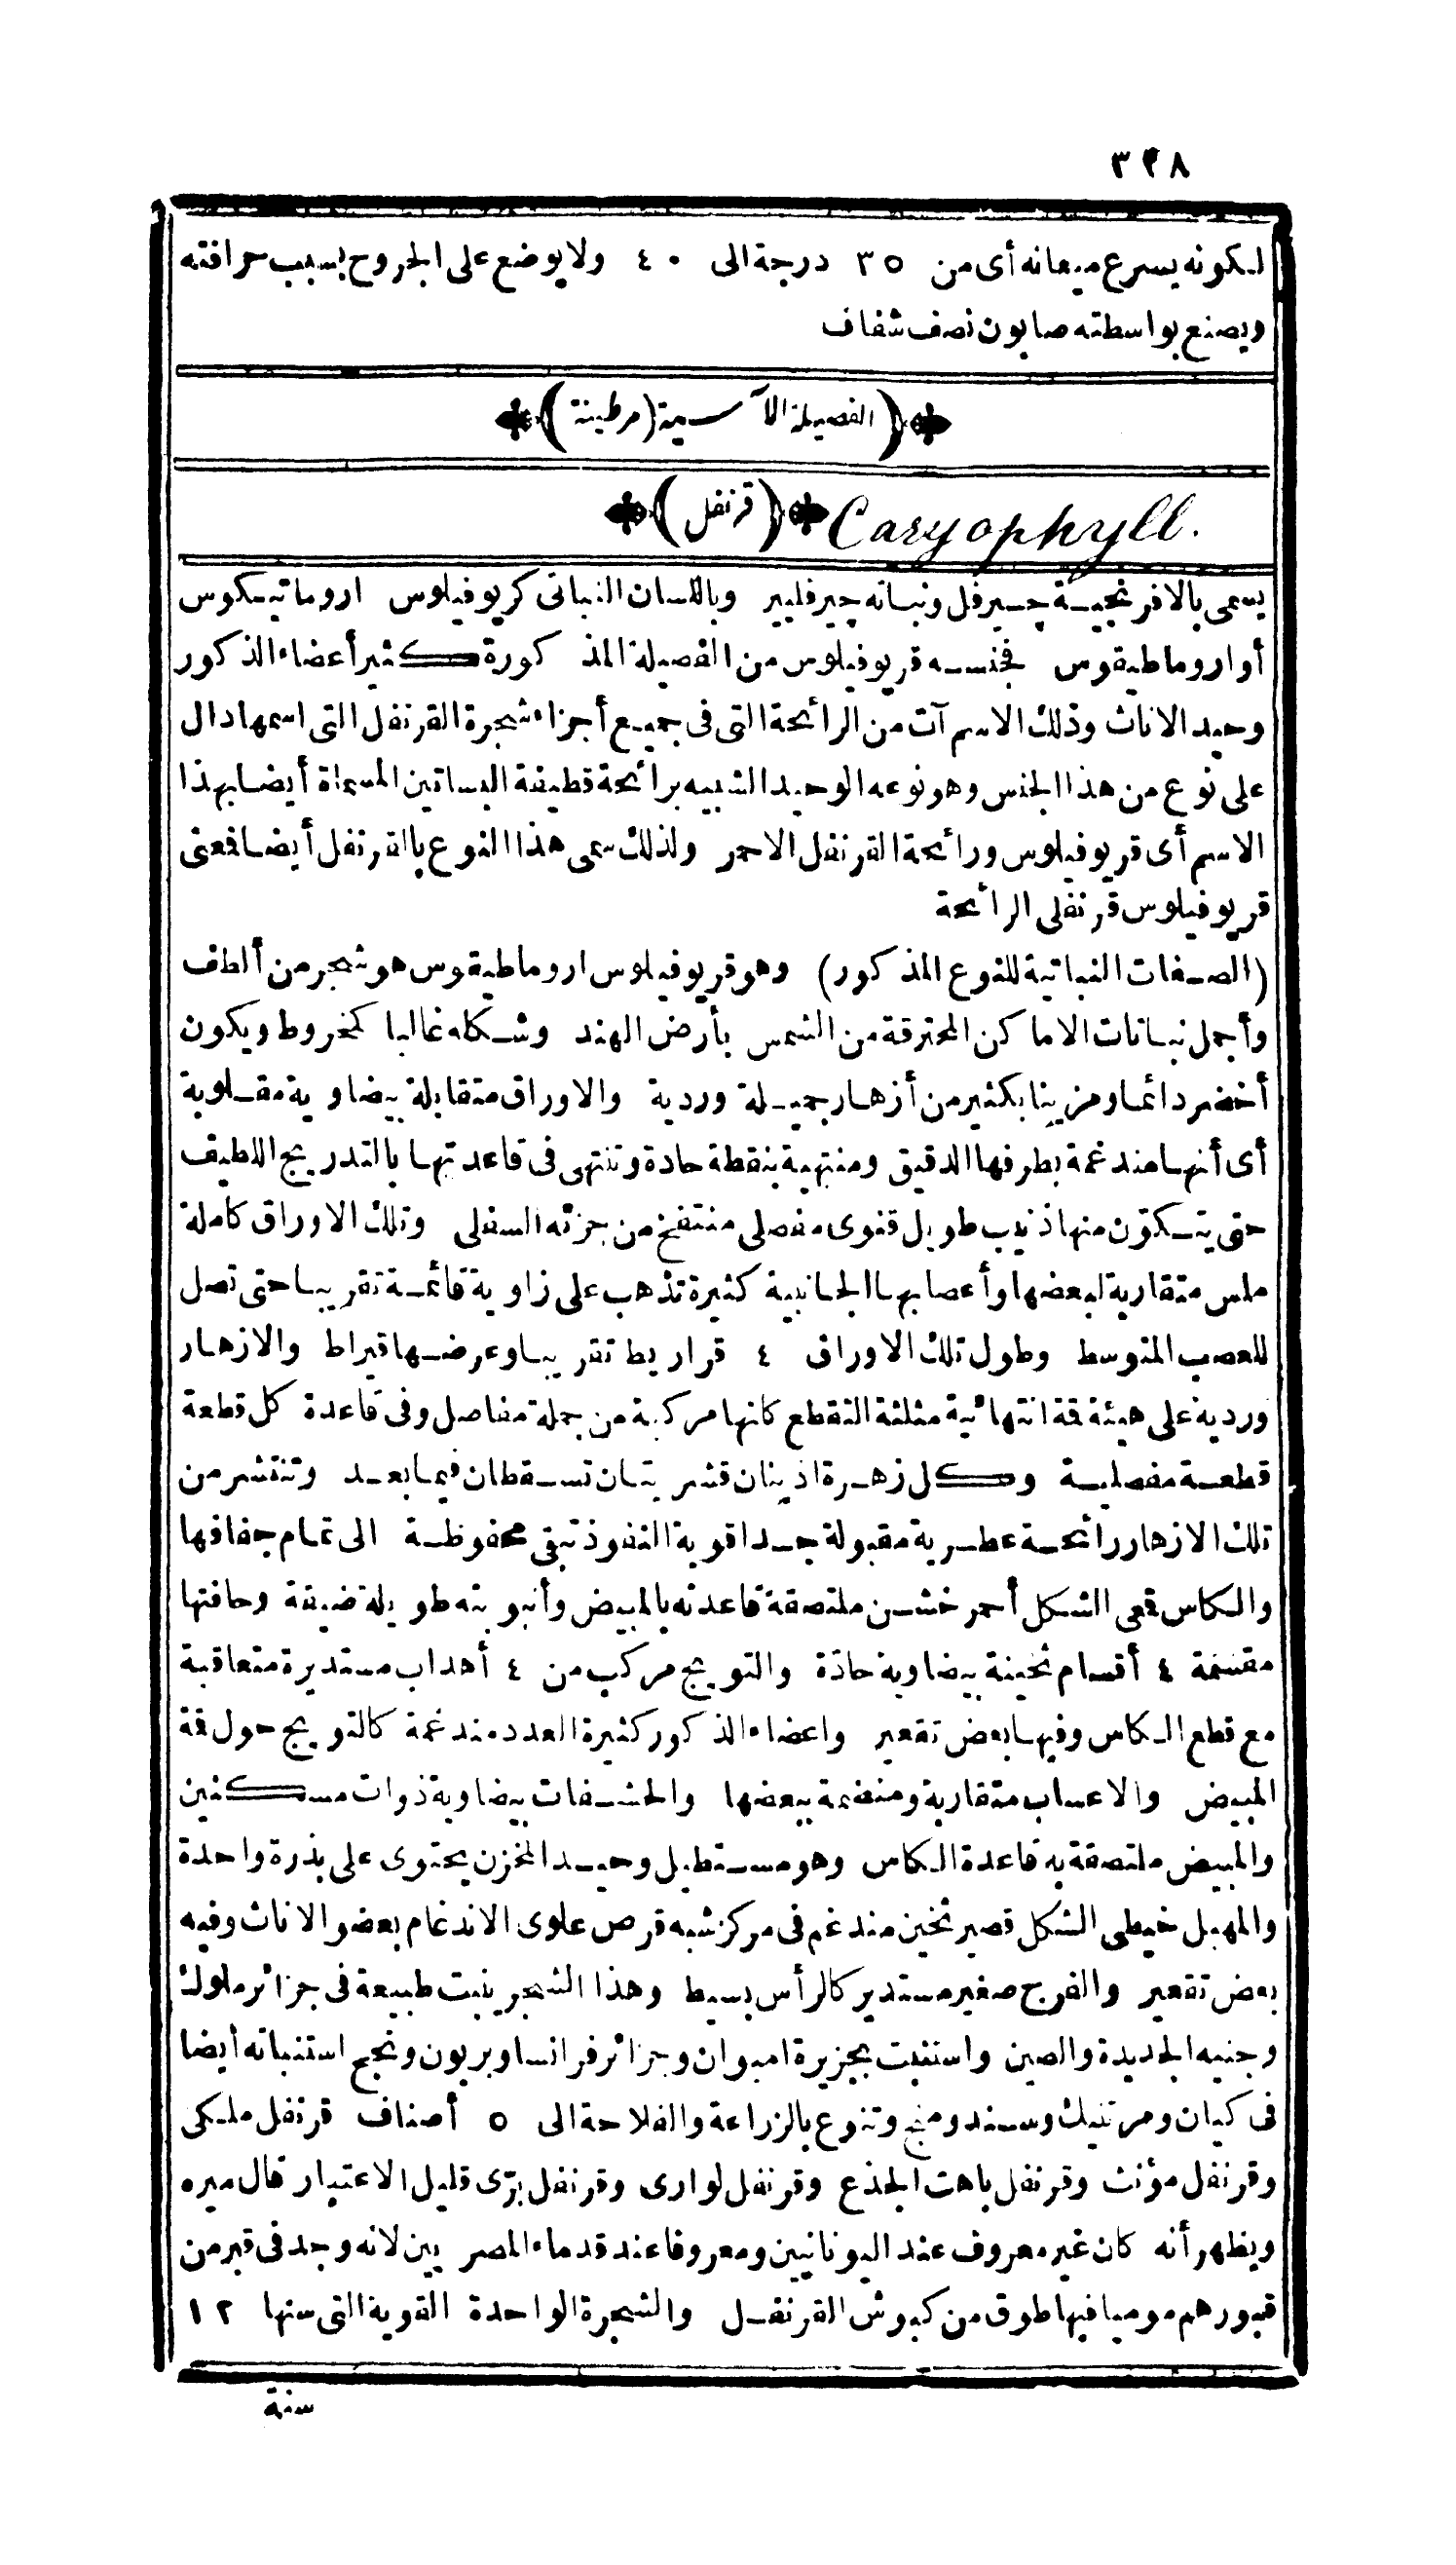 ٣٩٨
لكونه يسرع ميعانه أى من ٣٥ درجة الى ٤٠ ولا يوضع على الجروح بسبب حرافته
ويصنع بواسطته صابون نصف شفاف
(الفصيلة الآسية (مرطينة)
(قرنفل) Caryophyll.
يسمى بالافرنجية چيرفل ونباته چيرفليير وباللسان النباتى كريوفيلوس اروماتيكوس
أو اروماطيقوس فجنسه قريوفيلوس من الفصيلة المذكورة كثير أعضاء الذكور
وحيد الاناث وذلك الاسم آت من الرائحة التى فى جميع أجزاء شجرة القرنفل التى اسمها دال
على نوع من هذا الجنس وهو نوعه الوحيد الشبيه برائحة قطيفة البساتين المسماة أيضا بهذا
الاسم أى قريوفيلوس ورائحة القرنفل الاحمر ولذلك سمى هذا النوع بالقرنفل أيضا فعنى
قريوفيلوس قرنفلى الرائحة
(الصفات النباتية للنوع المذكور) وهو قريوفيلوس اروماطيقوس هو شجر من ألطف
وأجمل نباتات الاماكن المحترقة من الشمس بأرض الهند وشكله غالبا كمخروط ويكون
أخضر دائما ومزينا بكثير من أزهار جميلة وردية والاوراق متقابلة بيضاوية مقلوبة
أى أنها مندغمة بطرفها الدقيق ومنتهية بنقطة حادة وتنتهى فى قاعدتها بالتدريج اللطيف
حتى يتكوّن منها ذنيب طويل قنوى مفصلى منتفخ من جزئه السفلى وتلك الاوراق كاملة
ملس متقاربة لبعضها وأعصابها الجانبية كثيرة تذهب على زاوية قائمة تقريبا حتى تصل
للعصب المتوسط وطول تلك الاوراق ٤ قراريط تقريبا وعرضها قيراط والازهار
وردية على هيئة قمة انتهائية مثلثة التقطع كانها مركبة من جملة مفاصل وفى قاعدة كل قطعة
قطعة مفصلية وكل زهرة اذينان قشريتان تسقطان فيما بعد وتنتشر من
تلك الازهار رائحة عطرية مقبولة جدا قوية النفوذ تبقى محفوظة الى تمام جفافها
والكاس قمعى الشكل أحمر خشن ملتصقة قاعدته بالمبيض وأنبوبته طويلة ضيقة وحافتها
مقسمة ٤ أقسام ثخينة بيضاوية حادّة والتويج مركب من ٤ أهداب مستديرة متعاقبة
مع قطع الكاس وفيها بعض تقعير واعضاء الذكور كثيرة العدد مندغمة كالتويج حول قمة
المبيض والاعساب متقاربة ومنضمة ببعضها والحشفات بيضاوية ذوات مسكنين
والمبيض ملتصقة به قاعدة الكاس وهو مستطيل وحيد المخزن يحتوى على بذرة واحدة
والمهبل خيطى الشكل قصير ثخين مندغم فى مركز شبه قرص علوى الاندغام بعضو الاناث وفيه
بعض تقعير والفرج صغير مستدير كالرأس بسيط وهذا الشجر ينبت طبيعة فى جزائر ملوك
وجنيه الجديدة والصين واستنبت بجزيرة امبوان وجزائر فرانسا وبربون ونجح استنباته أيضا
فى كيان ومرتنيك وسندومنج وتنوع بالزراعة والفلاحة الى ٥ أصناف قرنفل ملكى
وقرنفل مؤنث وقرنفل باهت الجذع وقرنفل لوارى وقرنفل برّى قليل الاعتبار قال ميره
ويظهر أنه كان غير معروف عند اليونانيين ومعروفا عند قدماء المصريين لانه وجد فى قبر من
قبورهم موميا فيها طوق من كبوش القرنفل والشجرة الواحدة القوية التى سنها ١٢
سنة